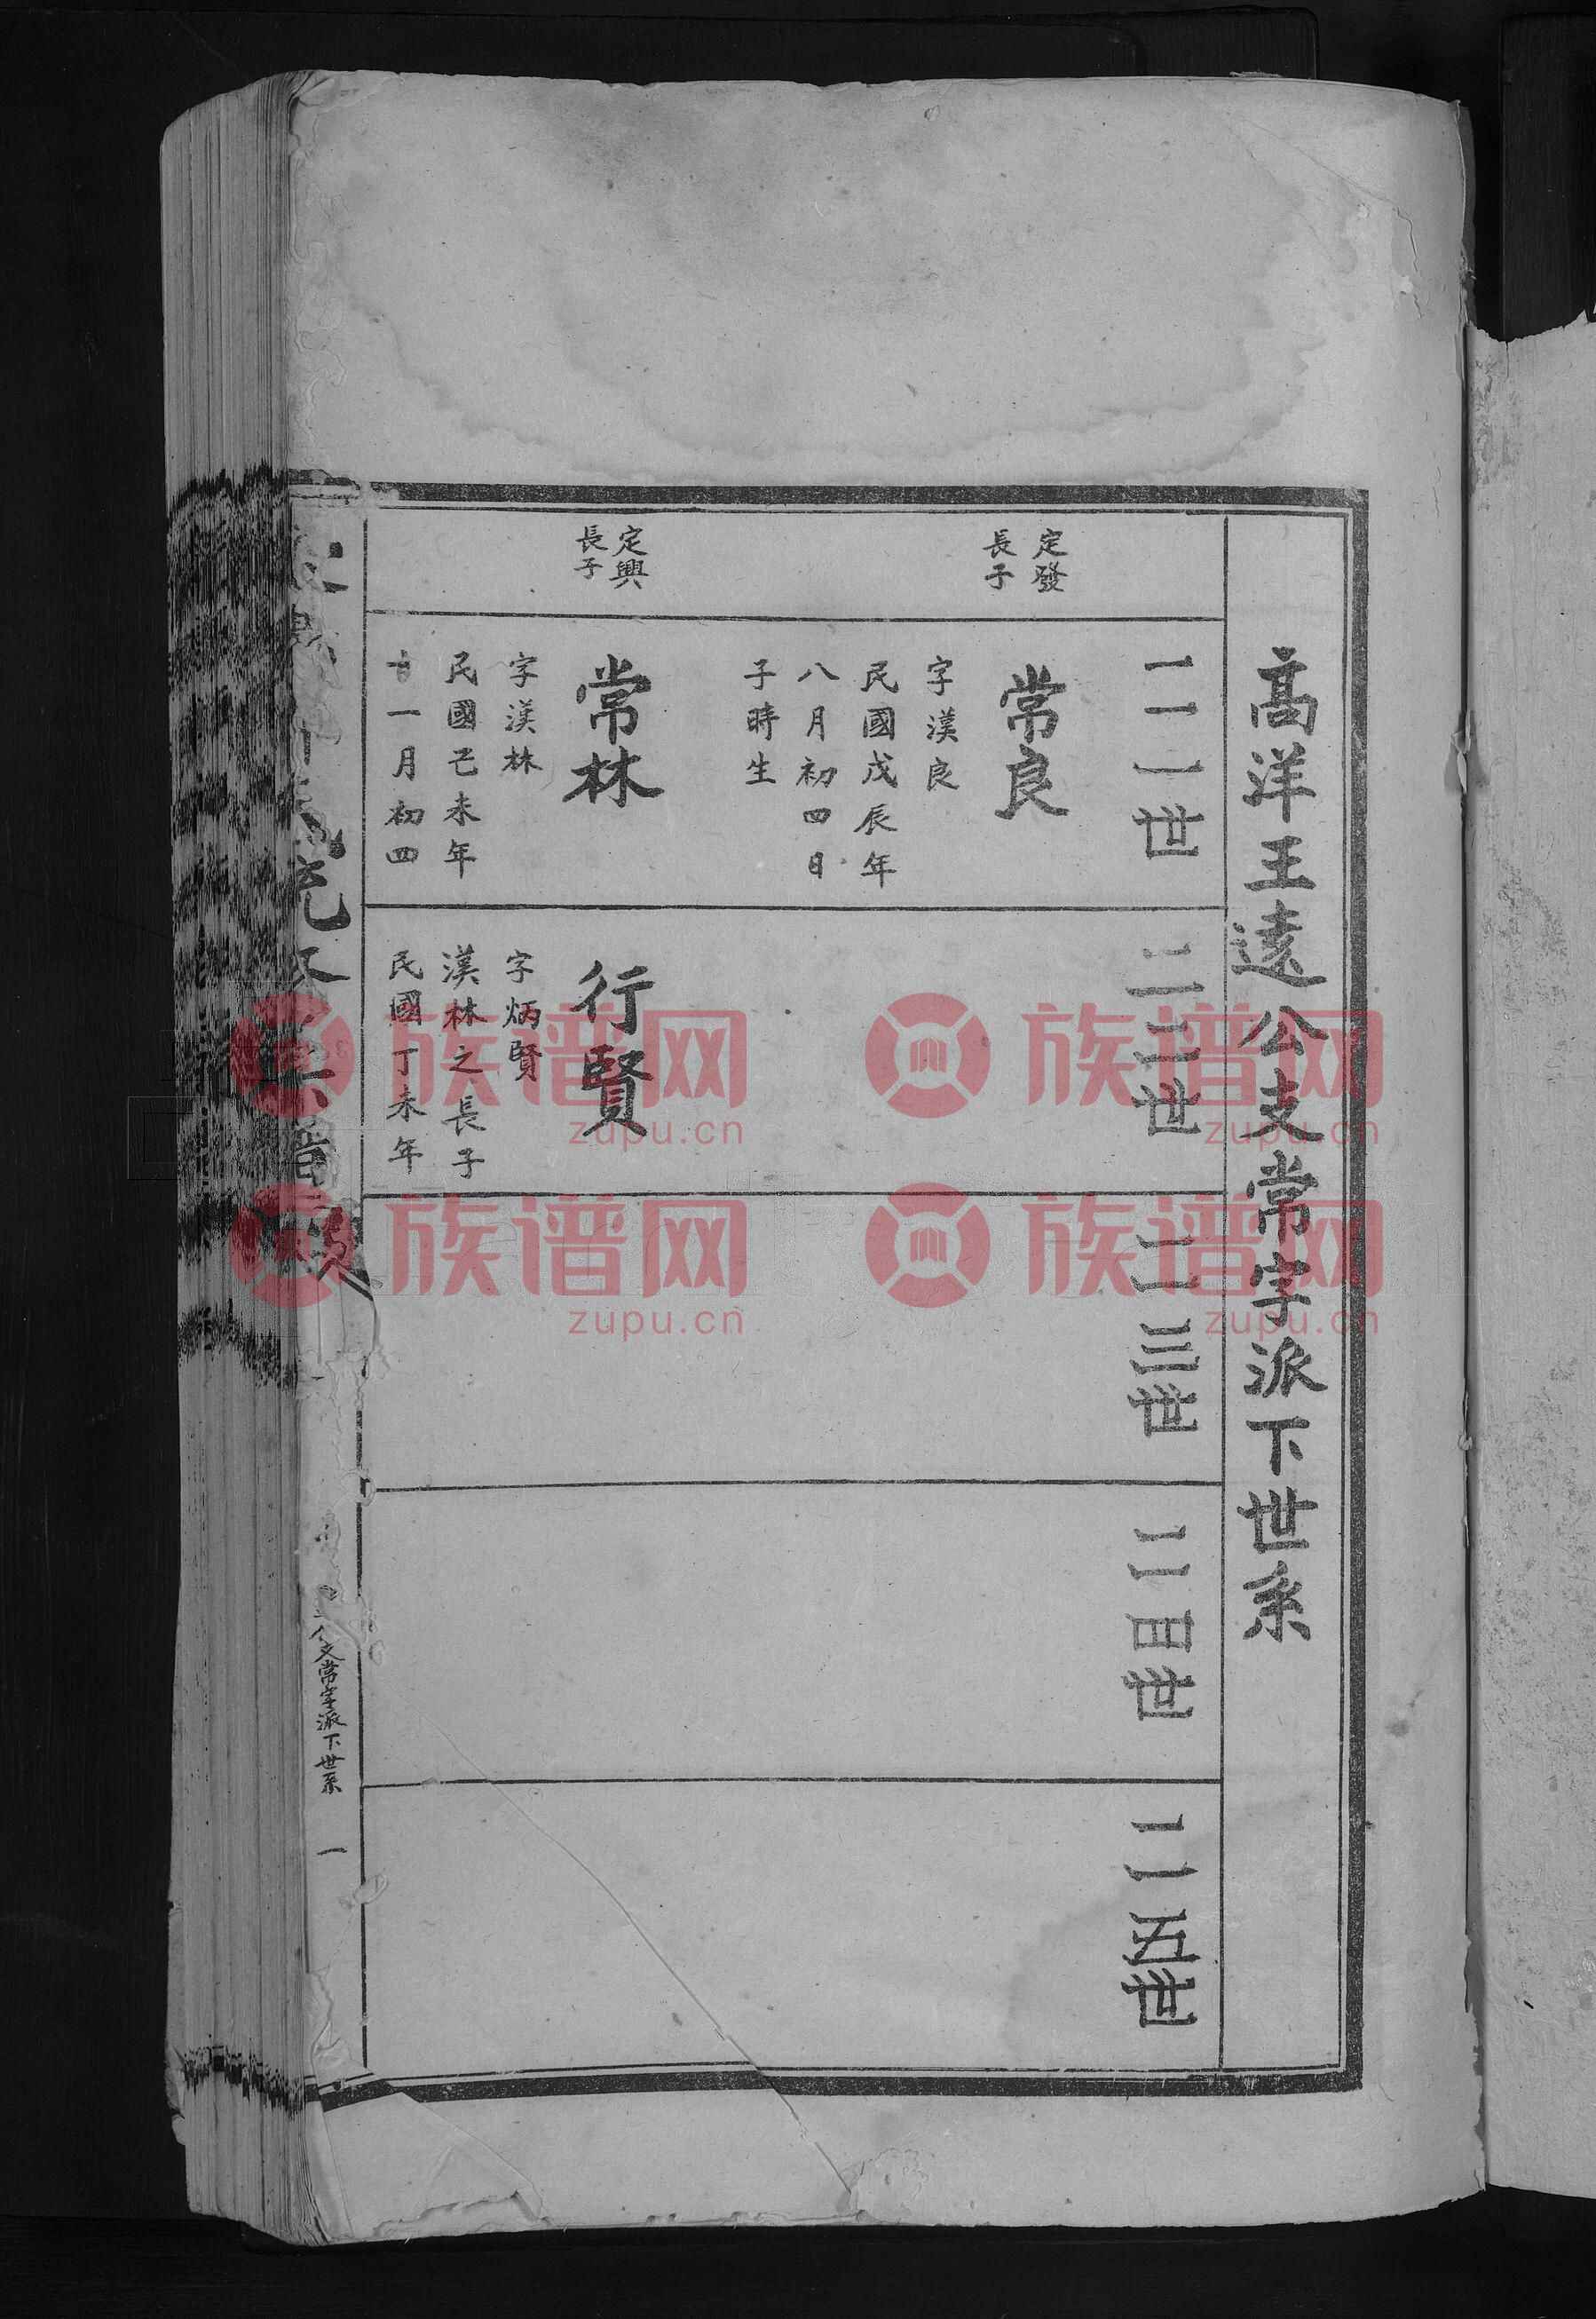 高洋王遠公支常字派下世系
二一世
二二世
二三世
二四世
二五世
定發
長子
常良
字漢良
民國戊辰年
八月初四日
子時生
定興
長子
常林
字漢林
民國己未年
十一月初四
行賢
字炳賢
漢林之長子
民國丁未年
支常字派下世系
一
族谱网
zupu.cn
族谱网
zupu.cn
族谱网
zupu.cn
族谱网
zupu.cn